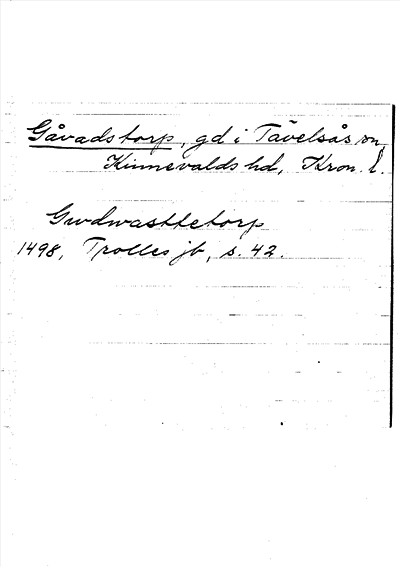 Gåvadstorp, gd i Tävelsås sn,
Kinnevalds hd, Kron. l.
Gwdwasttetorp
1498, Trolles jb, s. 42.